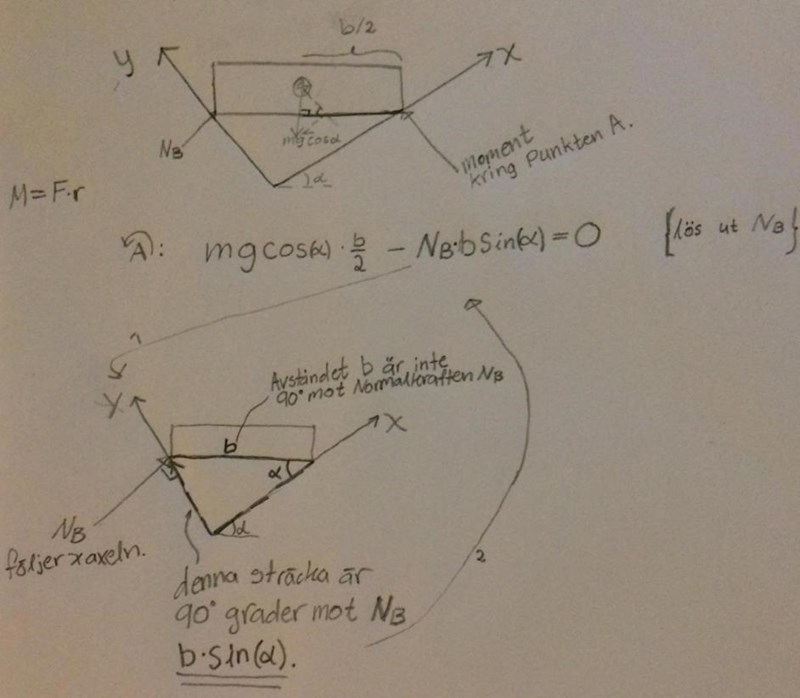 b/2
y
x
N_B
mg cosα
α
moment
kring Punkten A.
M=F·r
A: mg cos(α) · b/2 − N_B·b sin(α) = 0 [lös ut N_B}
1
Avståndet b är inte
90° mot Normalkraften N_B
y
x
b
α
α
N_B
följer xaxeln.
2
denna sträcka är
90° grader mot N_B
b·sin(α).